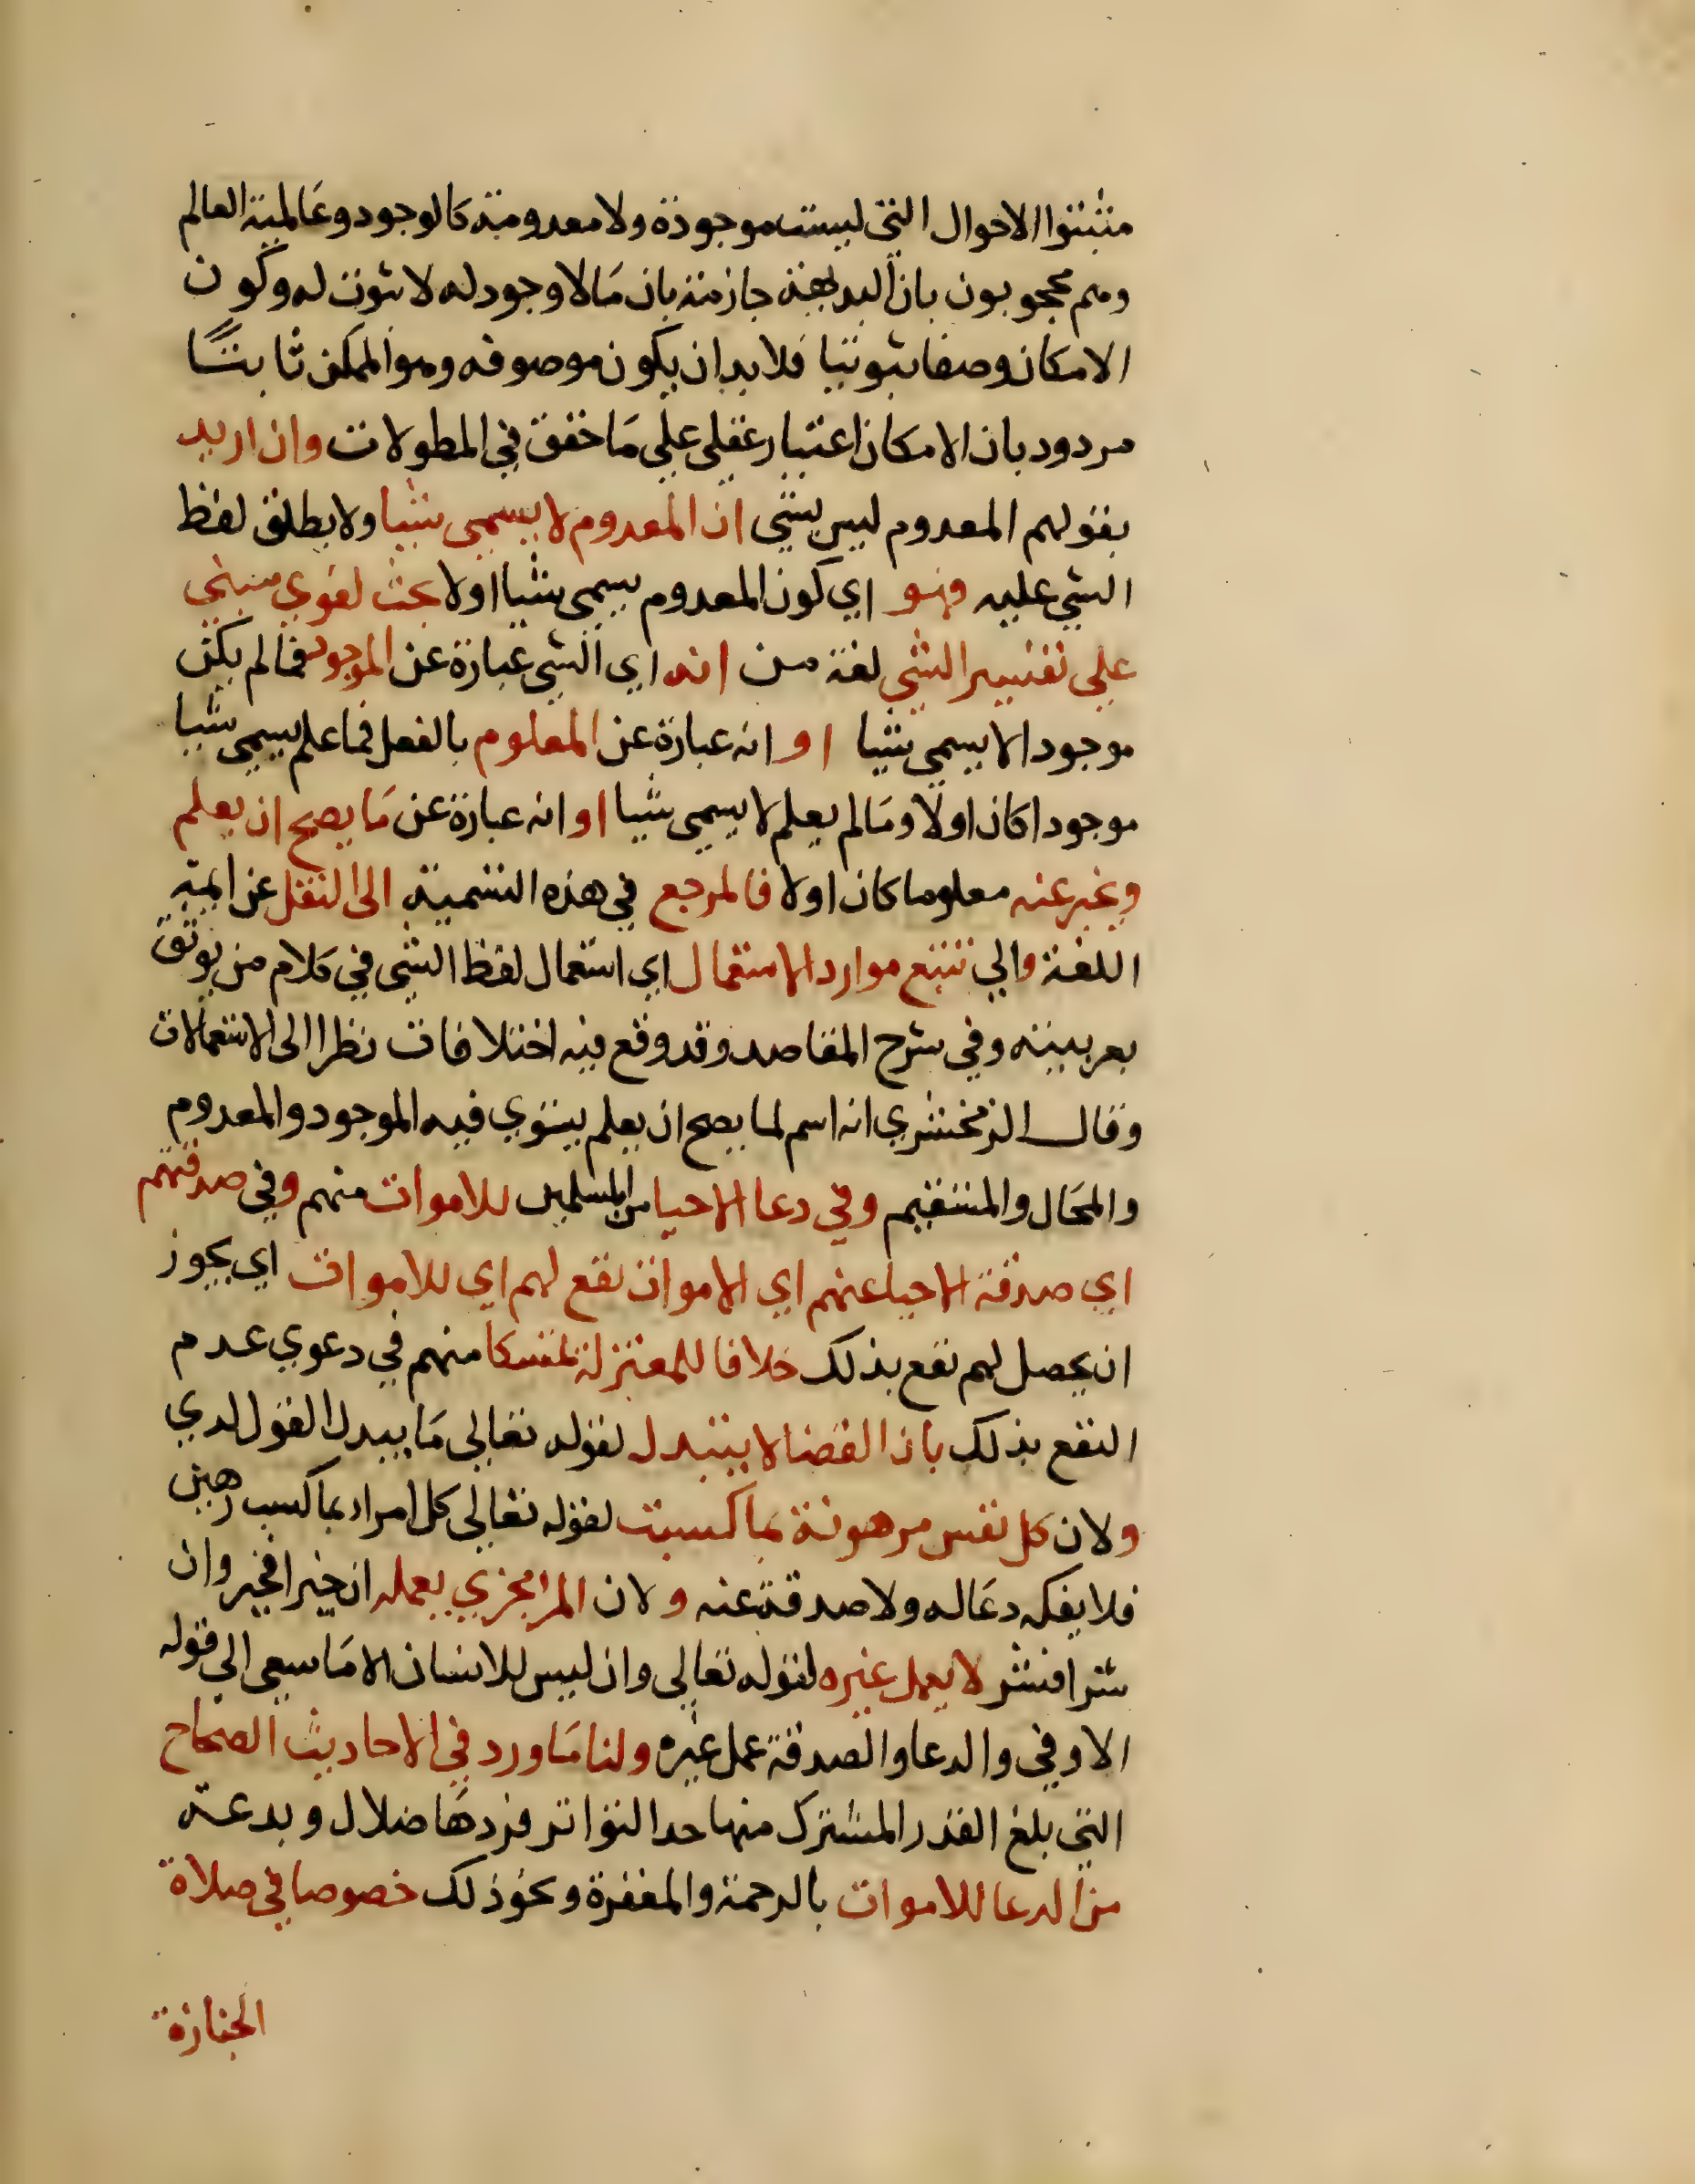 مثبتوا الاحوال التي ليست موجودة ولا معدومة كالوجود وعالمية العالم
وهم محجوبون بان البديهة جازمة بان مالا وجود له لا ثبوت له وكون
الامكان وصفا ثبوتيا فلابد ان يكون موصوفه وهو الممكن ثابتا
مردود بان الامكان اعتبار عقلي علي ما حقق في المطولات وان اريد
بقولهم المعدوم ليس بشي ان المعدوم لا يسمي شيا ولا يطلق لفظ
الشي عليه فهو اي كون المعدوم يسمي شيا اولا بحث لغوي مبني
علي تفسير الشي لغة من انه اي الشي عبارة عن الموجود فمالم يكن
موجودا لا يسمي شيا او انه عبارة عن المعلوم بالفعل فما علم يسمي شيا
موجودا كان اولا ومالم يعلم لا يسمي شيا او انه عبارة عن ما يصح ان يعلم
ويخبر عنه معلوما كان اولا فالمرجع في هذه التسمية الى النقل عن ايمة
اللغة والي تتبع موارد الاستعمال اي استعمال لفظ الشي في كلام من يوثق
بعربيته وفي شرح المقاصد وقد وقع فيه اختلافات نظرا الى الاستعمالات
وقال الزمخشري انه اسم لما يصح ان يعلم يستوي فيه الموجود والمعدوم
والمحال والمستقيم وفي دعا الاحيا من المسلمين للاموات منهم وفي صدقتهم
اي صدقة الاحيا عنهم اي الاموات نفع لهم اي للاموات اي يجوز
ان يحصل لهم نفع بذلك خلافا للمعتزلة تمسكا منهم في دعوي عدم
النفع بذلك بان القضا لا يتبدل لقوله تعالي ما يبدل القول لدي
ولان كل نفس مرهونة بما كسبت لقوله تعالي كل امراء بما كسب رهين
فلا يفكه دعا له ولا صدقة عنه ولان المرا مجزي بعمله ان خيرا فخير وان
شرا فشر لا بعمل غيره لقوله تعالي وان ليس للانسان الا ما سعي الي قوله
الاوفي والدعا والصدقة عمل غيره ولنا ما ورد في الاحاديث الصحاح
التي بلغ القدر المشترك منها حد التواتر فردها ضلال وبدعة
من الدعا للاموات بالرحمة والمغفرة ونحو ذلك خصوصا في صلاة
الجنازة